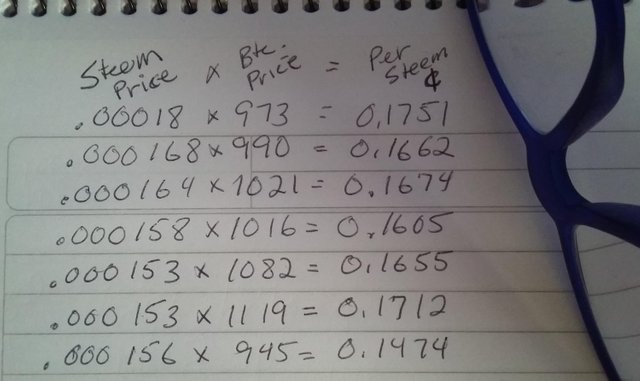 Steem Price x Btc. Price = Per Steem ¢
.00018 x 973 = 0.1751
.000168 x 990 = 0.1662
.000164 x 1021 = 0.1674
.000158 x 1016 = 0.1605
.000153 x 1082 = 0.1655
.000153 x 1119 = 0.1712
.000156 x 945 = 0.1474